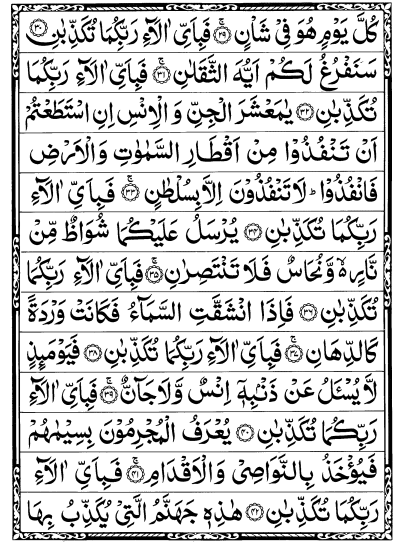 كُلَّ يَوْمٍ هُوَ فِيْ شَاْنٍ ۟ۚ۝۲۹ فَبِاَيِّ اٰلَآءِ رَبِّكُمَا تُكَذِّبٰنِ ۝۳۰
سَنَفْرُغُ لَكُمْ اَيُّهَ الثَّقَلٰنِ ۟ۚ۝۳۱ فَبِاَيِّ اٰلَآءِ رَبِّكُمَا
تُكَذِّبٰنِ ۝۳۲ يٰمَعْشَرَ الْجِنِّ وَ الْاِنْسِ اِنِ اسْتَطَعْتُمْ
اَنْ تَنْفُذُوْا مِنْ اَقْطَارِ السَّمٰوٰتِ وَ الْاَرْضِ
فَانْفُذُوْا ؕ لَا تَنْفُذُوْنَ اِلَّا بِسُلْطٰنٍ ۟ۚ۝۳۳ فَبِاَيِّ اٰلَآءِ
رَبِّكُمَا تُكَذِّبٰنِ ۝۳۴ يُرْسَلُ عَلَيْكُمَا شُوَاظٌ مِّنْ
نَّارٍ ۙ۬ وَّ نُحَاسٌ فَلَا تَنْتَصِرٰنِ ۟ۚ۝۳۵ فَبِاَيِّ اٰلَآءِ رَبِّكُمَا
تُكَذِّبٰنِ ۝۳۶ فَاِذَا انْشَقَّتِ السَّمَآءُ فَكَانَتْ وَرْدَةً
كَالدِّهَانِ ۟ۚ۝۳۷ فَبِاَيِّ اٰلَآءِ رَبِّكُمَا تُكَذِّبٰنِ ۝۳۸ فَيَوْمَىِٕذٍ
لَّا يُسْـَٔلُ عَنْ ذَنْۢبِهٖۤ اِنْسٌ وَّ لَا جَآنٌّ ۟ۚ۝۳۹ فَبِاَيِّ اٰلَآءِ
رَبِّكُمَا تُكَذِّبٰنِ ۝۴۰ يُعْرَفُ الْمُجْرِمُوْنَ بِسِيْمٰىهُمْ
فَيُؤْخَذُ بِالنَّوَاصِيْ وَ الْاَقْدَامِ ۟ۚ۝۴۱ فَبِاَيِّ اٰلَآءِ
رَبِّكُمَا تُكَذِّبٰنِ ۝۴۲ هٰذِهٖ جَهَنَّمُ الَّتِيْ يُكَذِّبُ بِهَا